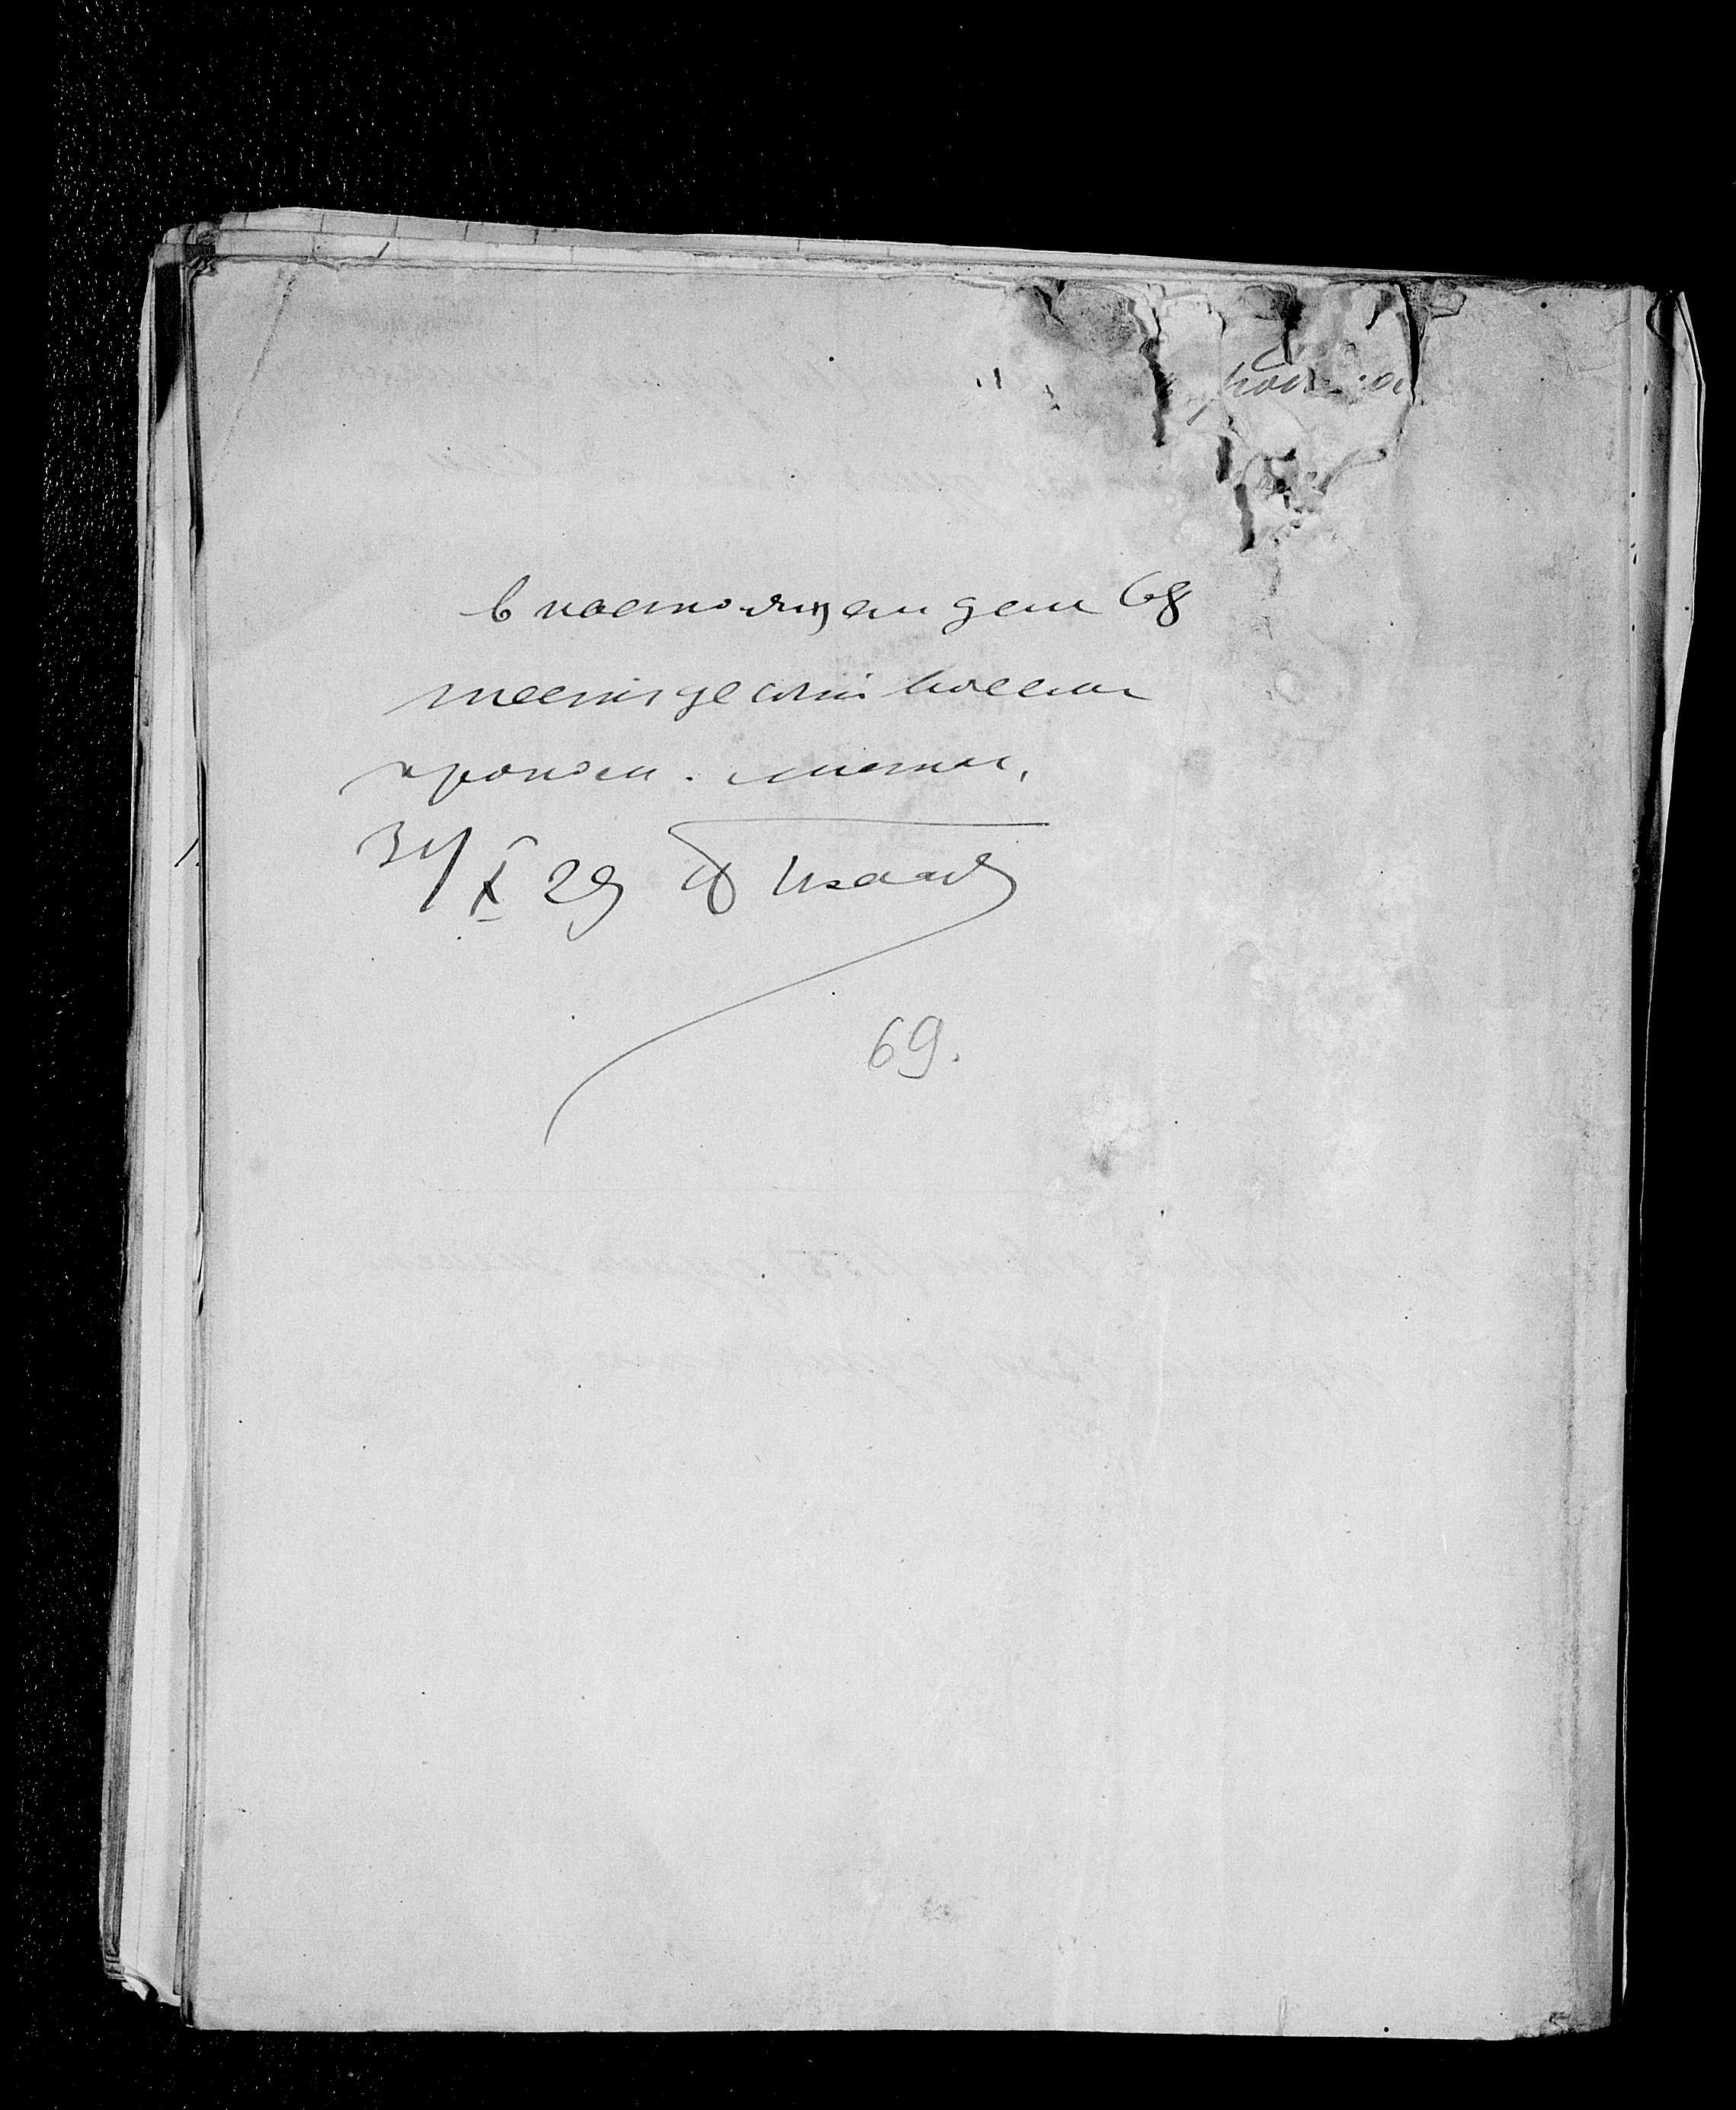 В настоящем деле 68
шестьдесят восемь
пронум. листов.
31/X 29
69.